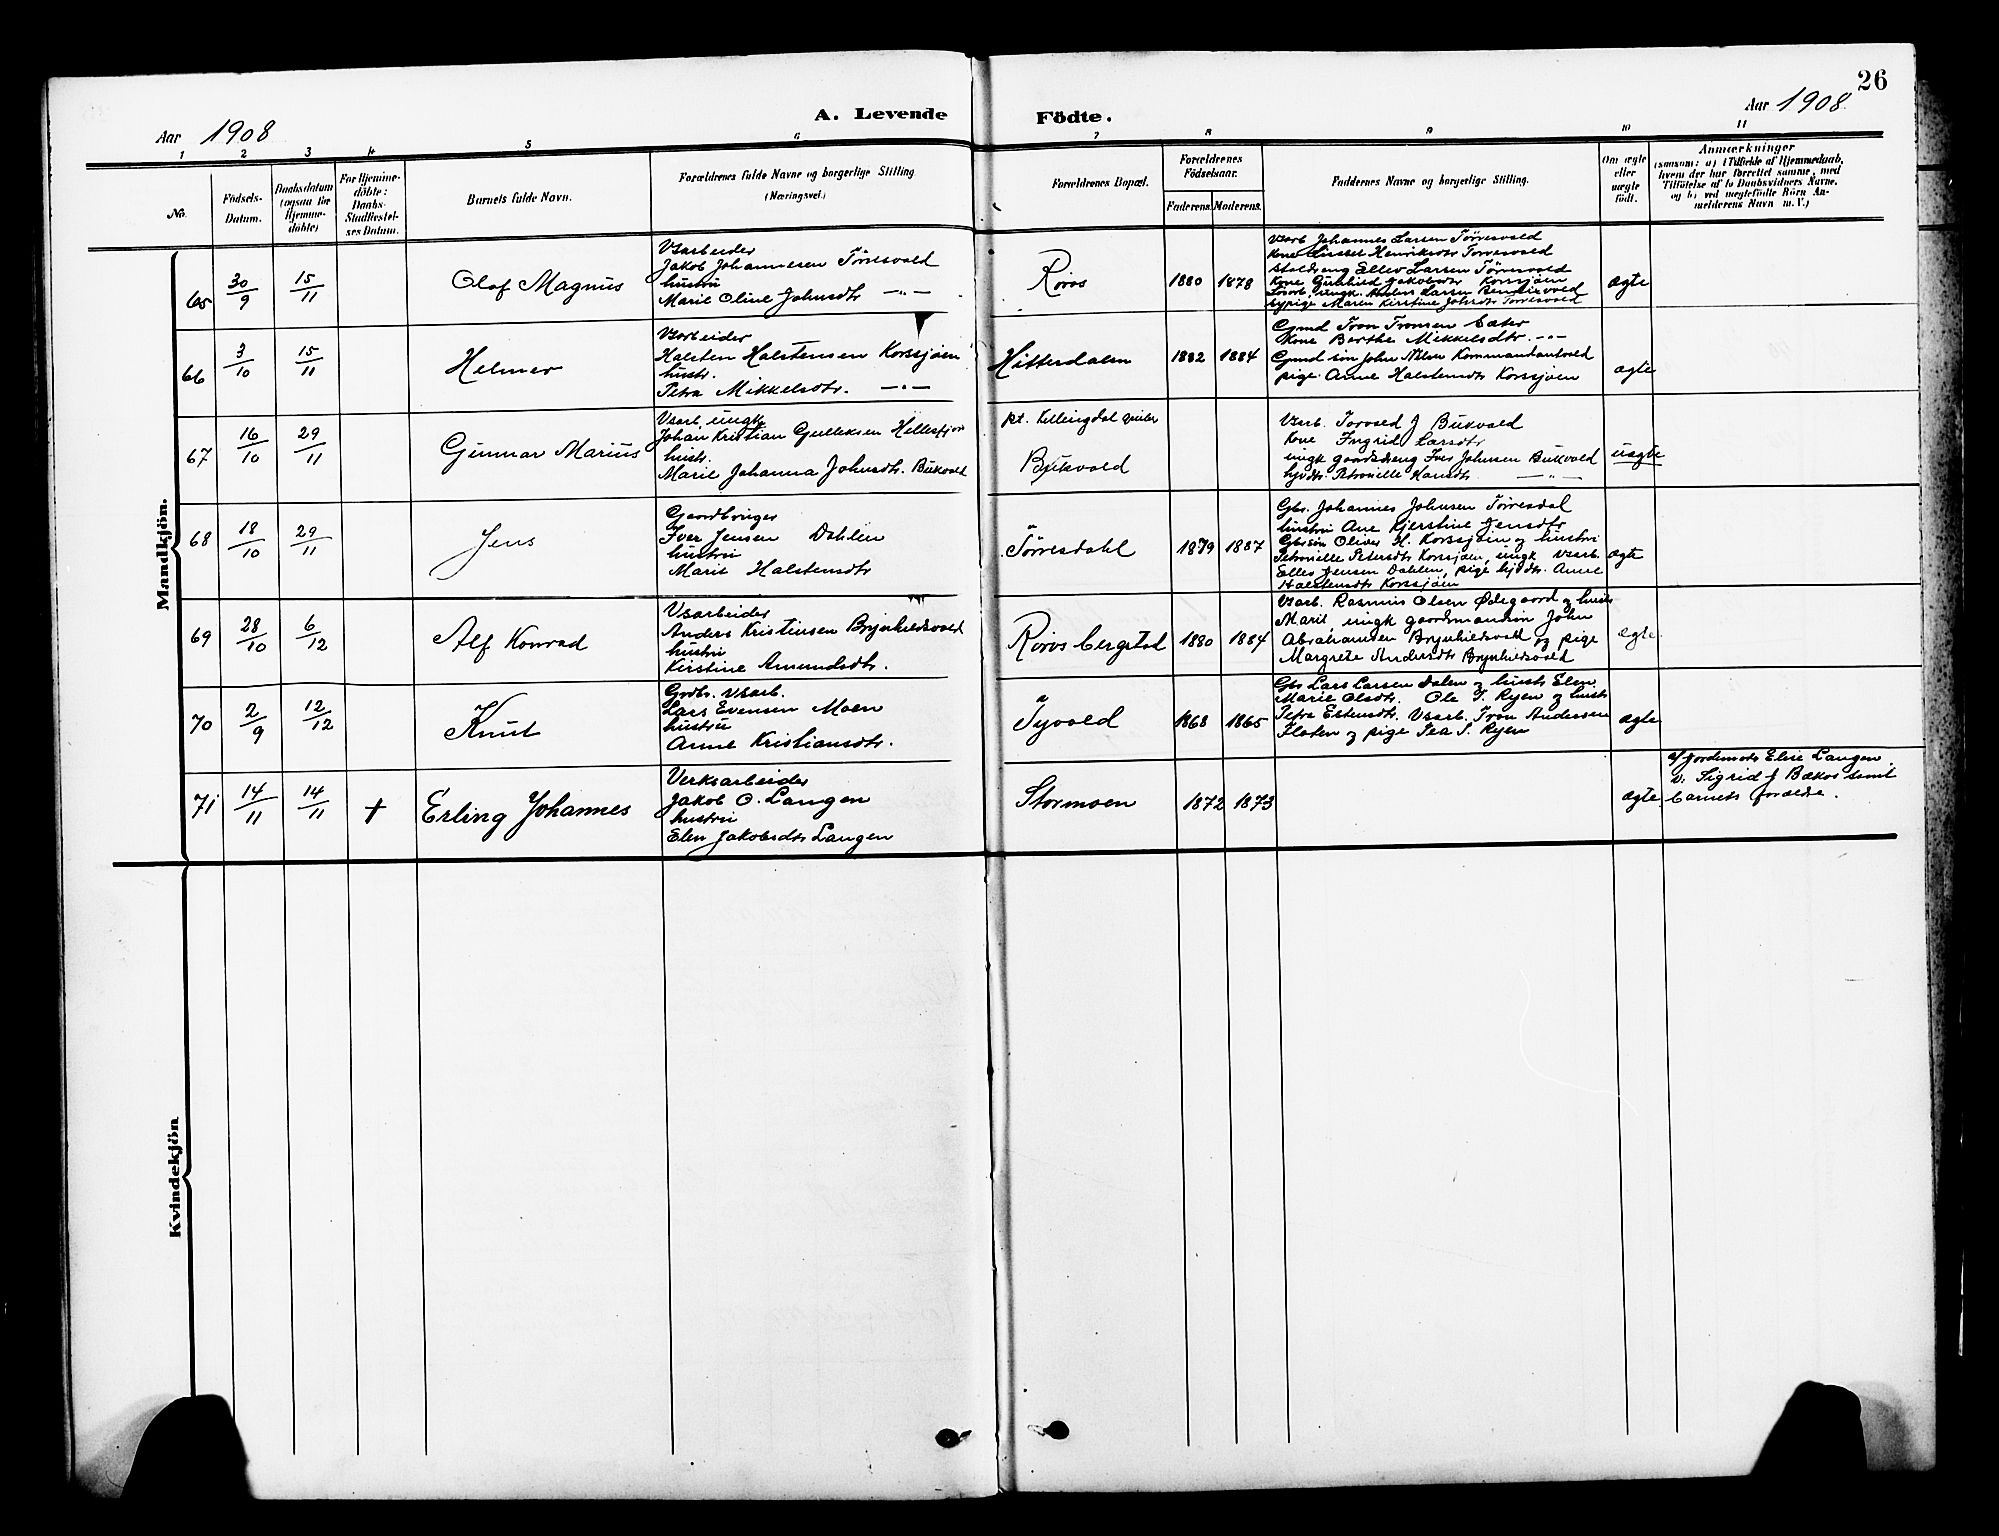 26
Aar 1908
A. Levende Födte.
Aar 1908
1 2 3 4 5 6 7 8 9 10 11
No.
Födsels-
Datum.
Daabsdatum
(ogsaa for
Hjemme-
döbte)
For Hjemme-
döbte:
Daabs-
Stadfæstel-
ses Datum.
Barnets fulde Navn.
Forældrenes fulde Navne og borgerlige Stilling
(Næringsvei.)
Forældrenes Bopæl.
Forældrenes
Födselsaar.
Faderens. Moderens.
Faddernes Navne og borgerlige Stilling.
Om ægte
eller
uægte
födt.
Anmærkninger
(saasom: a) i Tilfælde af Hjemmedaab,
hvem der har forrettet samme, med
Tilföielse af to Daabsvidners Navne,
og b) ved uægtefödte Börn An-
melderens Navn m. V.)
Mandkjön.
65
30/9
15/11
Olaf Magnus
Vsarbeider
Jakob Johannesen Törresvold
hustru
Marie Oline Johnsdtr —"—
Röros
1880 1878
Vsarb. Johannes Larsen Törresvold
Kone Sisset Henriksdtr Törresvold
Ellev Larsen Törresvold
Kone Gunhild Jakobsdtr Korssjöen
ungk. Anders Larsen
sypige Maren Kirstine Johsdtr Törresvold
ægte
66
3/10
15/11
Helmer
Vsarbeider
Halsten Halstensen Korssjöen
hustr.
Petra Mikkelsdtr. —"—
Hitterdalen
1882 1884
Gmd Tron Tronsen Sæter
Kone Berthe Mikkelsdtr. —"—
Gmd sön John Nilsen Kommandantvold
pige Anne Halstensdtr Korssjöen
ægte
67
16/10
29/11
Gunnar Marius
Vsarb. ungk
Johan Kristian Gulleksen Hellesfjor
hustr.
Marie Johanna Johnsdtr. Bukvold
pt. Killingdal gruber
Bukvold
Vsarb. Torvald J Bukvold
Kone Ingrid Larsdtr
ungk gaardsdreng Iver Johnsen Bukvold
hjdtr. Petronille Hansdtr —"—
uægte
68
18/10
29/11
Jens
Gaardbruger
Iver Jensen Dahlen
hustru
Marit Halstensdtr
Törresdahl
1879 1887
Gbr. Johannes Johnsen Törresdal
hustru Ane Kjerstine Jensdtr
Gbrsön Oliver H. Korssjöen og hustru
Petronille Petersdtr Korssjöen, ungk vsarb.
Ellev Jensen Dahlen, pige hjdtr. Anne
Halstensdtr Korssjöen
ægte
69
28/10
6/12
Alf Konrad
Vsarbeider
Anders Kristensen Brynhildsvold
hustru
Kirstine Amundsdtr.
Röros bergstad
1880 1884
Vsarb. Rasmus Olsen Ødegaard og hustr
Marit, ungk gaardmandsön John
Abrahamsen Brynhildsvold og pige
Margrete Andersdtr Brynhildsvold
ægte
70
2/9
12/12
Knut
Grdbr. vsarb.
Lars Evensen Moen
hustru
Anne Kristiansdtr.
Tyvold
1868 1865
Gbr Lars Larsen Dalen og hustr Elen
Marie Olsdtr. Ole T. Ryen og hustr
Petra Estensdtr. Vsarb. Tron Andersen
Floten og pige Pea T. Ryen
ægte
71
14/11
14/11
+
Erling Johannes
Verksarbeider
Jakob O. Langen
hustru
Elen Jakobsdtr Langen
Stormoen
1872 1873
ægte
af jordemoder Elise Langen
v. Sigrid J Bækos samt
barnets forældre.
Kvindekjön